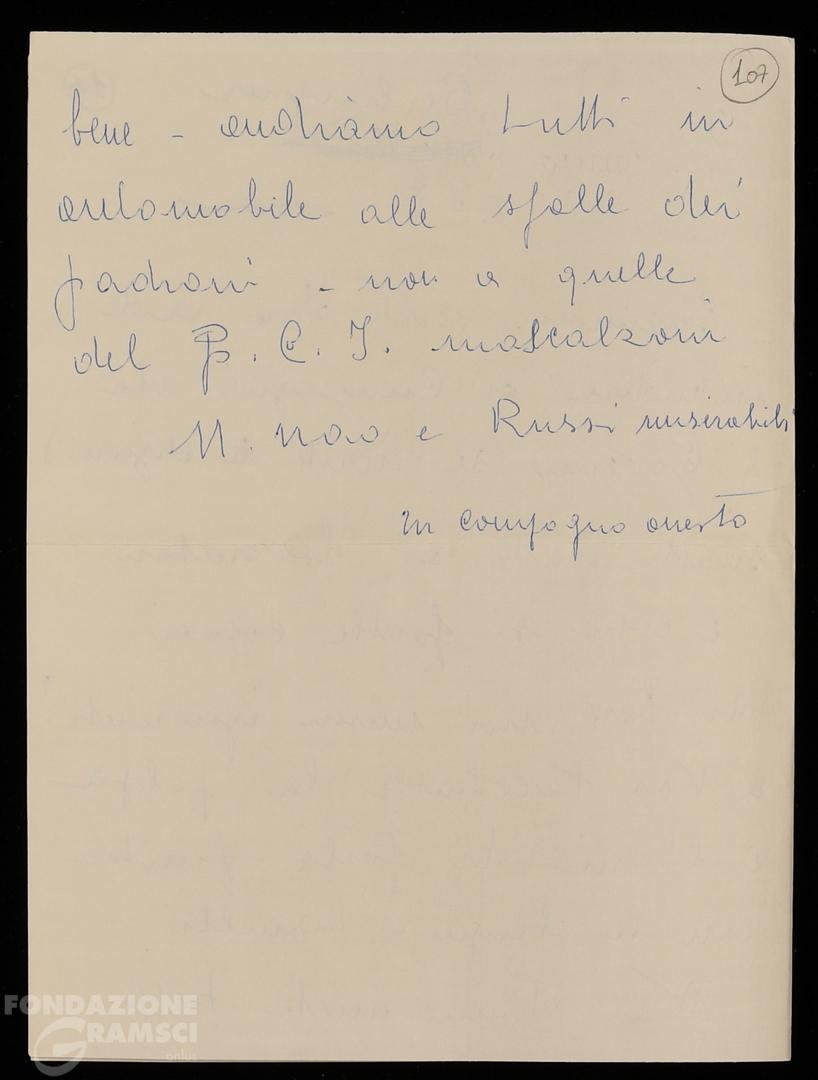 107
bene - andiamo tutti in
automobile alle spalle dei
padroni - non a quelle
del P. C. I. mascalzoni
M. nao e Russi miserabili
un compagno onesto
FONDAZIONE
GRAMSCI
onlus